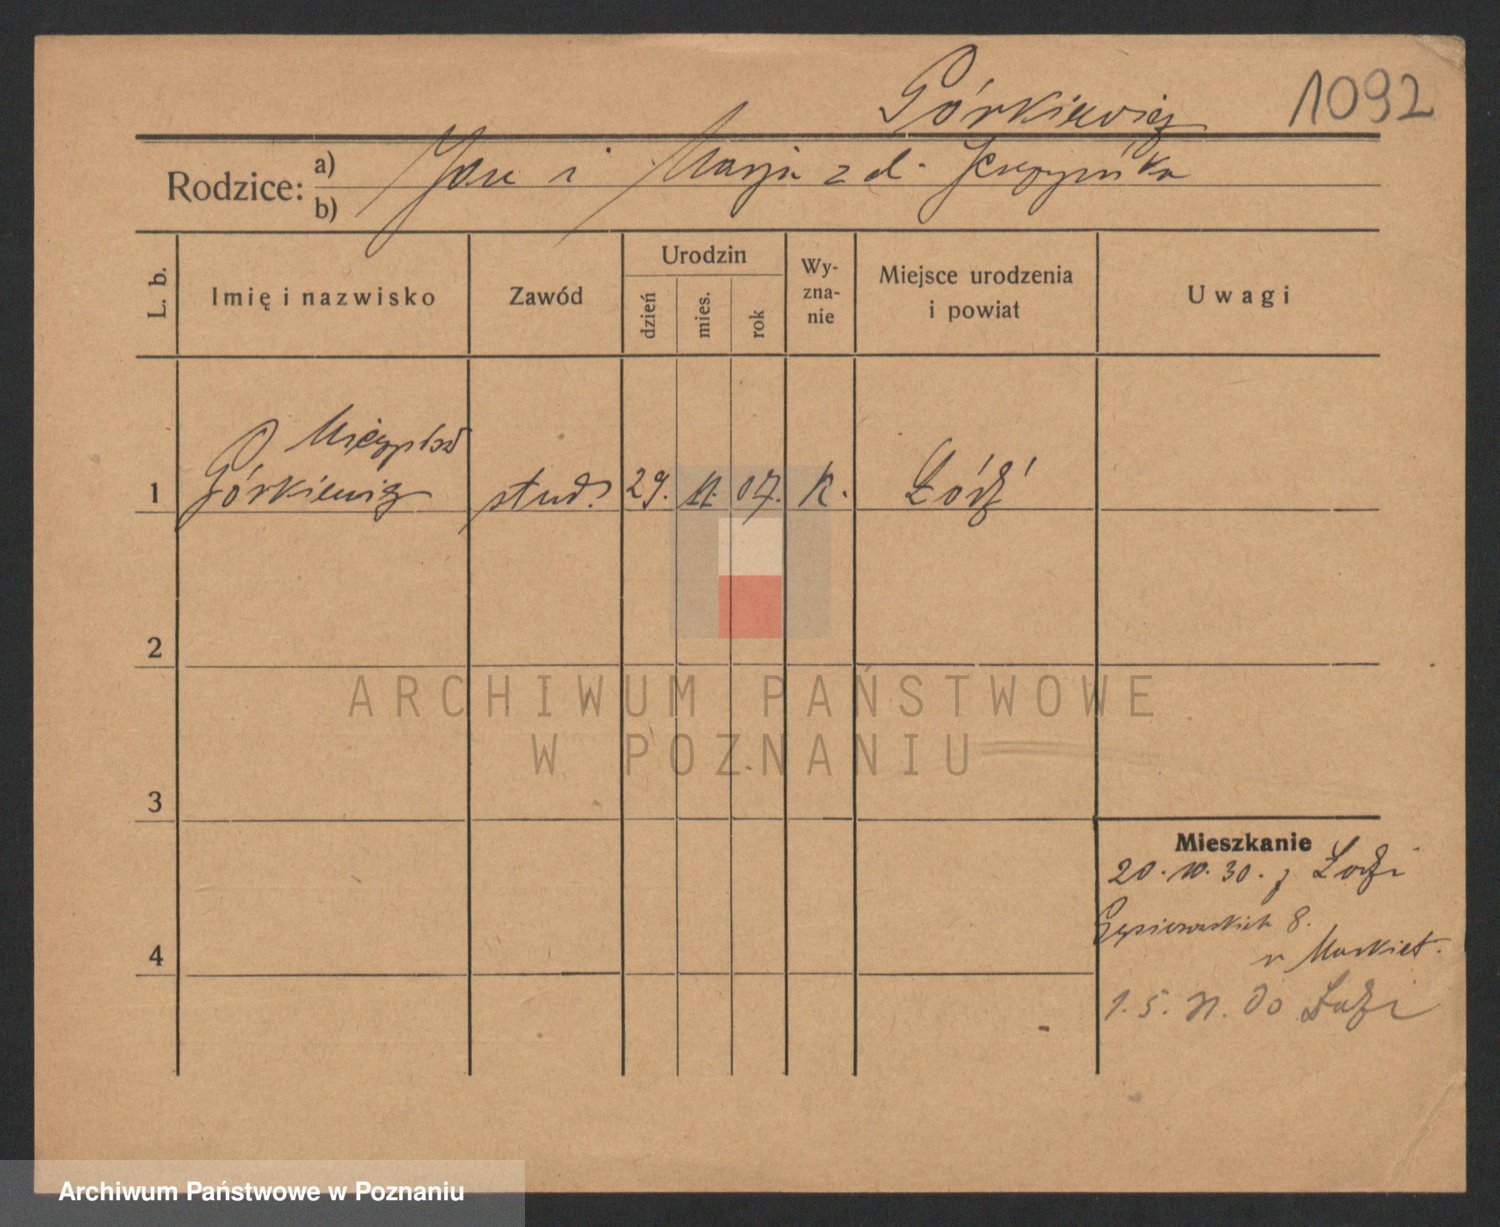 Górkiewicz 1092
Rodzice: a) Jan i Marja z d.
b)
L. b.
Imię i nazwisko
Zawód
Urodzin
dzień
mies.
rok
Wy-
zna-
nie
Miejsce urodzenia
i powiat
Uwagi
Mieczysław
1 Górkiewicz stud. 29. 11. 07. k. Łódź
2
ARCHIWUM PAŃSTWOWE
W POZNANIU
3
Mieszkanie
20. 10. 30. z Łodzi
8.
Markiet.
4
1. 5. 31. do Łodzi
Archiwum Państwowe w Poznaniu